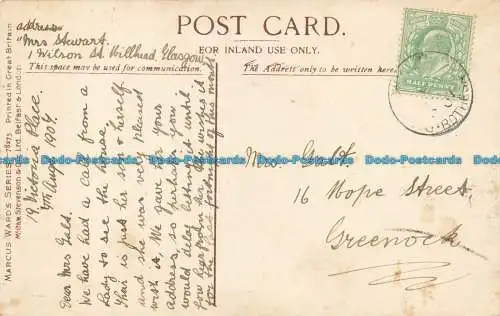 POST CARD.
FOR INLAND USE ONLY.
This space may be used for communication.
The Address only to be written here
address
Mrs Stewart.
1 Wilson St. Hillhead, Glasgow
19 Victoria Place.
7th Aug. 1904.
Dear Mrs Galt.
We have had a call from a
Lady to see the house,
their is just her son & herself
and she was very pleased
with it. We gave her your
address, so perhaps you
would delay letting it until
you hear from her. She wishes it
for the last fortnight of this month
Mrs. Galt.
16 Hope Street,
Greenock
MARCUS WARD'S SERIES Printed in Great Britain
McCaw, Stevenson & Orr, Ltd. Belfast & London.
HALF PENNY
ROTHESAY
Dodo-Postcards Dodo-Postcards Dodo-Postcards Dodo-Postcards Dodo-Postcards